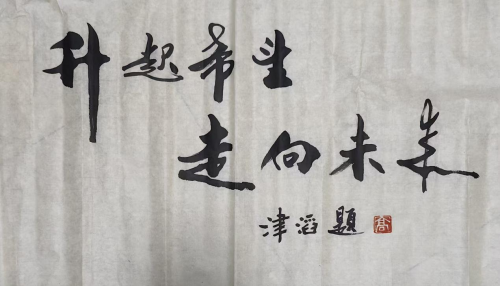 升起希望
走向未来
津滔题